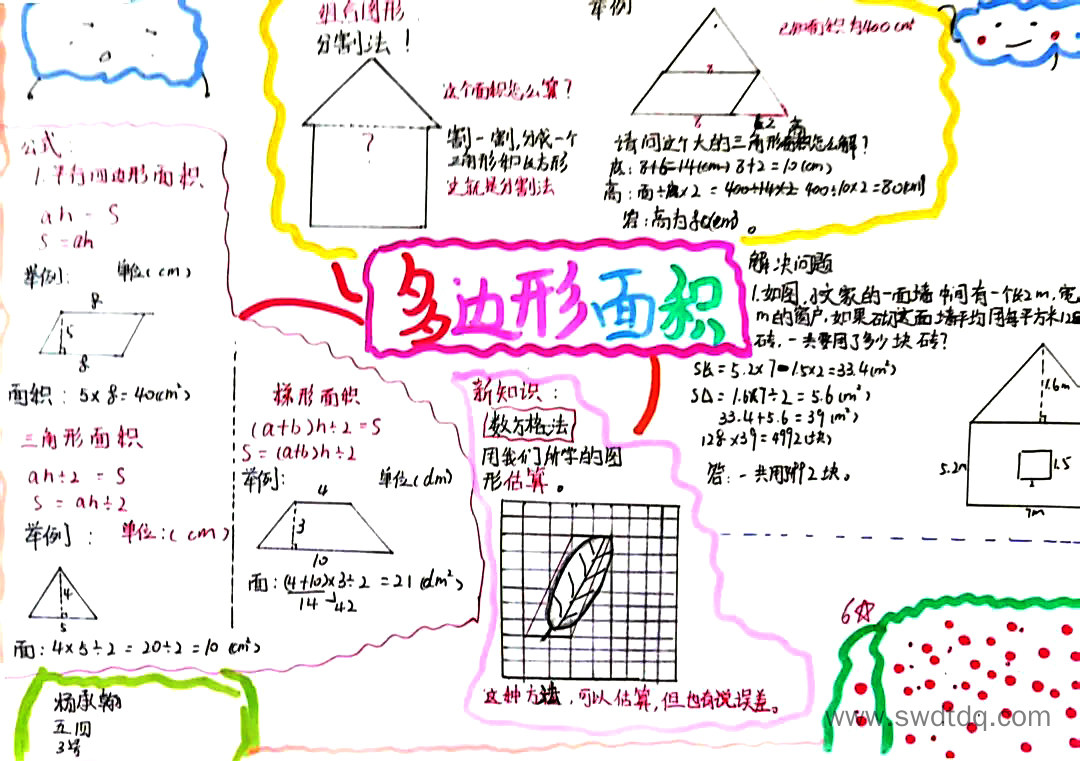 组合图形
分割法！
这个面积怎么算？
?
割一割，分成一个
三角形和长方形
这就是分割法
举例
已知面积为400cm²
请问这个大的三角形面积怎么解？
底：8+6=14(cm) 8+2=10(cm)
高：面÷底×2 = 400÷14×2 400÷10×2=80(cm)
答：高为80(cm)。
公式：
1.平行四边形面积
ah = S
S = ah
举例：单位(cm)
8
5
8
面积：5×8=40(cm²)
三角形面积
ah÷2 = S
S = ah÷2
举例：单位：(cm)
4
5
面：4×5÷2 = 20÷2 = 10 (cm²)
梯形面积
(a+b)h÷2=S
S=(a+b)h÷2
举例：单位(dm)
4
3
10
面：(4+10)×3÷2 =21(dm²)
14
42
多边形面积
新知识：
数方格法
用我们所学的图
形估算。
这种方法，可以估算，但也有说误差。
解决问题
1.如图，小文家的一面墙中间有一个长2m，宽
m的窗户.如果砌这面墙平均用每平方米128
砖，一共要用了多少块砖？
S长=5.2×7-1.5×2=33.4(m²)
S△=1.6×7÷2=5.6(m²)
33.4+5.6=39(m²)
128×39=4992(块)
答：一共用4992块。
1.6m
5.2m
1.5
7m
杨承翰
五四
3号
6☆
www.swdtdq.com